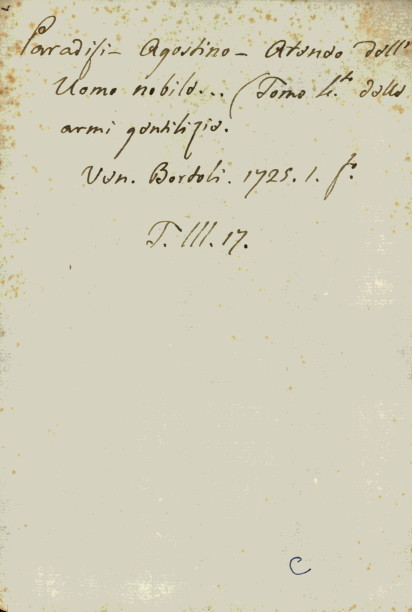 Paradisi - Agostino - Ateneo dell'
Uomo nobile... (Tomo 4.to delle
armi gentilizie.
Ven. Bortoli. 1725. 1. f.o
T. III. 17.
C